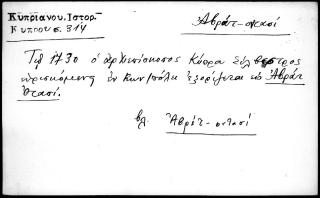 Κυπριανου. Ιστορ.
Κυπρου σ. 314
Ἀβράτ-οτασί
Τῷ 1730 ὁ ἀρχιεπίσκοπος Κύπρου Σίλβεστρος
εὑρισκόμενος ἐν Κων/πόλει ἐξορίζεται εἰς Ἀβράτ
Ὀτασί.
βλ. Ἀβρὰτ-οντασί